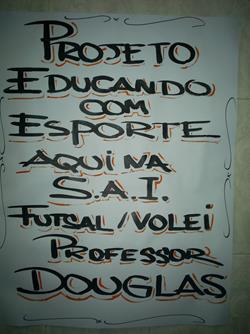 PROJETO
EDUCANDO
COM
ESPORTE
AQUI NA
S.A.I.
FUTSAL/VOLEI
PROFESSOR
DOUGLAS